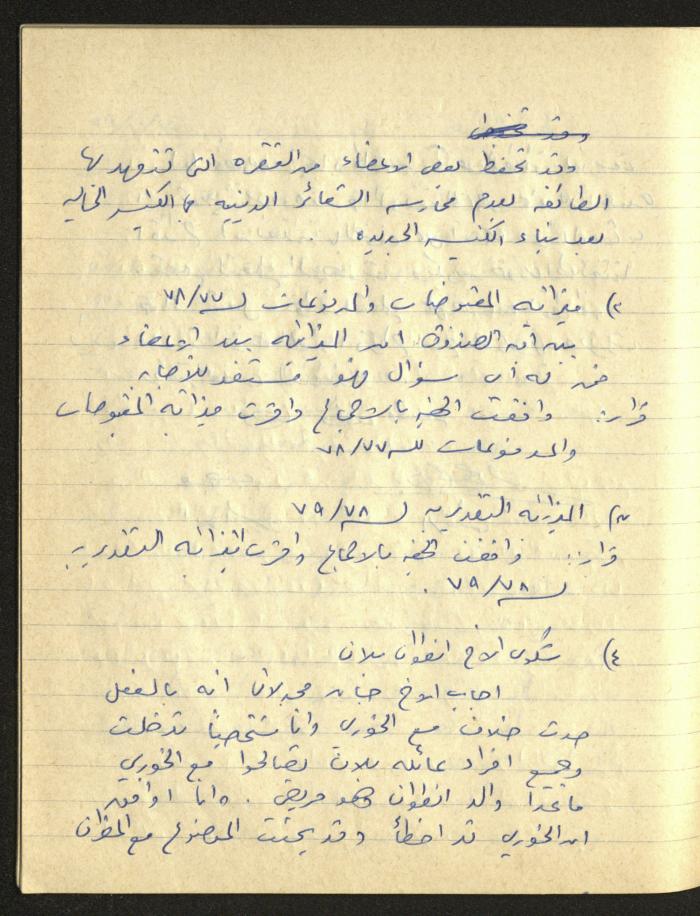 وقد تحفظ بعض الاعضاء من الفقره التي تتعهد بها
الطائفه بعدم ممارسه الشعائر الدينيه في الكنيسه الحاليه
بعد بناء الكنيسه الجديده .
٢) ميزانيه المقبوضات والمدفوعات لسنة ٧٨/٧٧
بين امين الصندوق ان الميزانيه بيد الاعضاء
فمن له أي سؤال فهو مستعد للأجابه
قرار: وافقت الهيئه بالاجماع واقرت ميزانيه المقبوضات
والمدفوعات لسنة ٧٨/٧٧
٣) الميزانيه التقديريه لسنة ٧٩/٧٨
قرار: وافقت الهيئه بالاجماع واقرت الميزانيه التقديريه
لسنة ٧٩/٧٨ .
٤) شكوى الاخ انطوان بلان
اجاب الاخ مجدلاني انه بالفعل
حدث خلاف مع الخوري وانا شخصياً تدخلت
وجميع افراد عائله بلان تصالحوا مع الخوري
ما عدا والد انطوان وهو مريض . وانا اوافق
ان الخوري قد اخطأ وقد بحثت الموضوع مع المطران